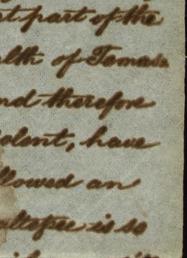 t part of the
lth of Temasa
nd therefore
olent, have
llowed an
is so